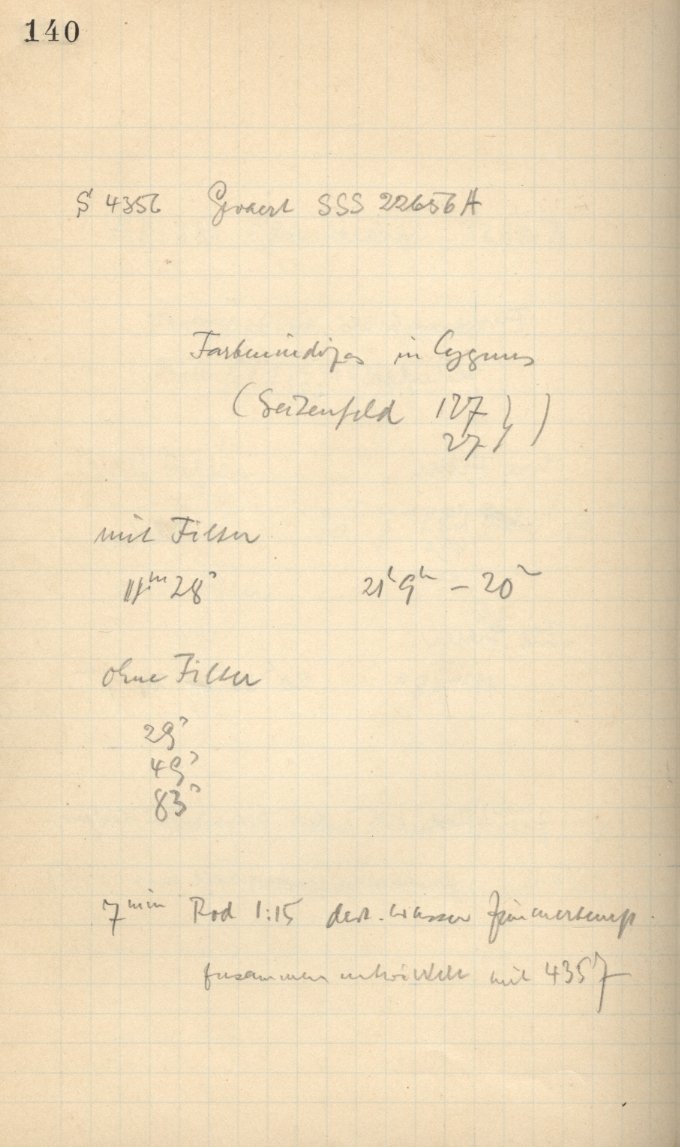 140
S 4356 Gevaert SSS 22656A
Farbenindizes in Cygnus
(Seitenfeld 127 } )
27 }
mit Filter
11ᵐ 28ˢ 21ʰ 9ᵐ – 20ᵐ
ohne Filter
29ˢ
49ˢ
83ˢ
7ᵐⁱⁿ Rod 1:15 dest. Wasser Zimmertemp.
zusammen entwickelt mit 4357